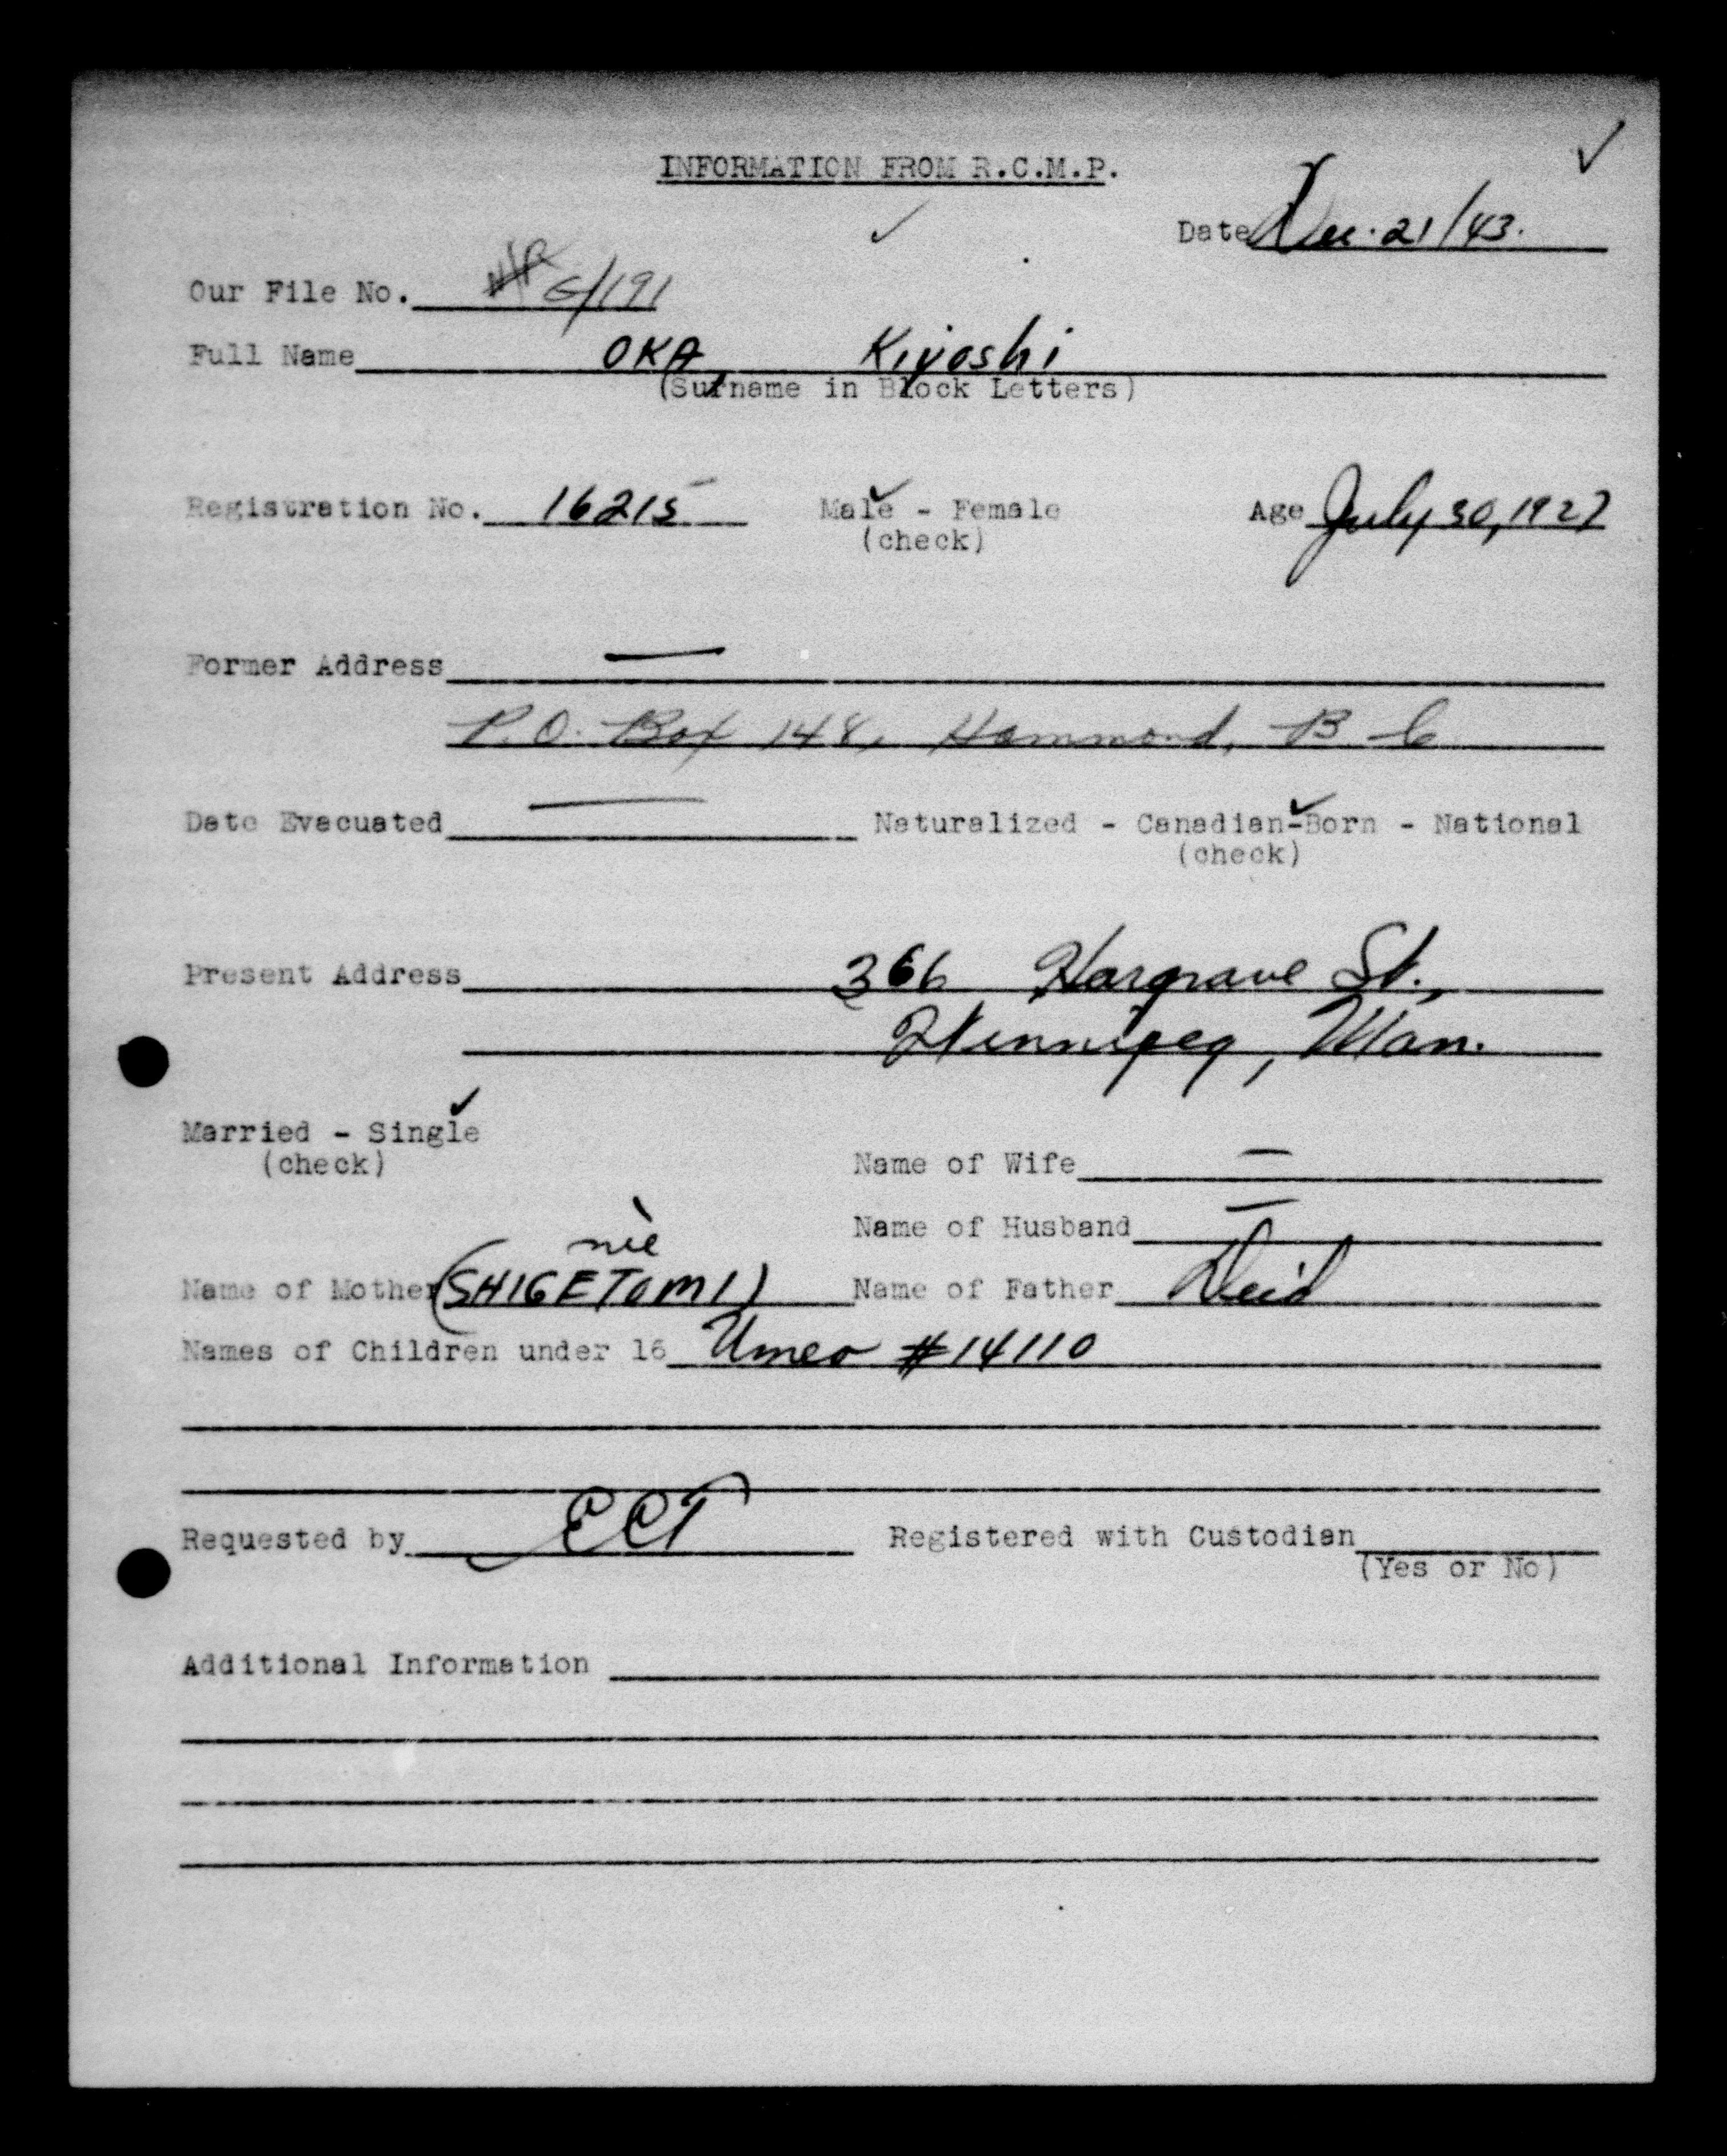 INFORMATION FROM R.C.M.P.
Date Dec. 21/43.
Our File No. 6/191
Full Name OKA Kiyoshi
(Surname in Block Letters)
Registration No. 16215 Male - Female Age July 30, 1927
(check)
Former Address —
P.O. Box 148, Hammond, B C
Date Evacuated — Naturalized - Canadian-Born - National
(check)
Present Address 366 Hargrave St.,
Winnipeg, Man.
Married - Single
(check)
Name of Wife —
Name of Husband —
née
Name of Mother (SHIGETOMI) Name of Father
Names of Children under 16 Umeo #14110
Requested by ECT Registered with Custodian
(Yes or No)
Additional Information